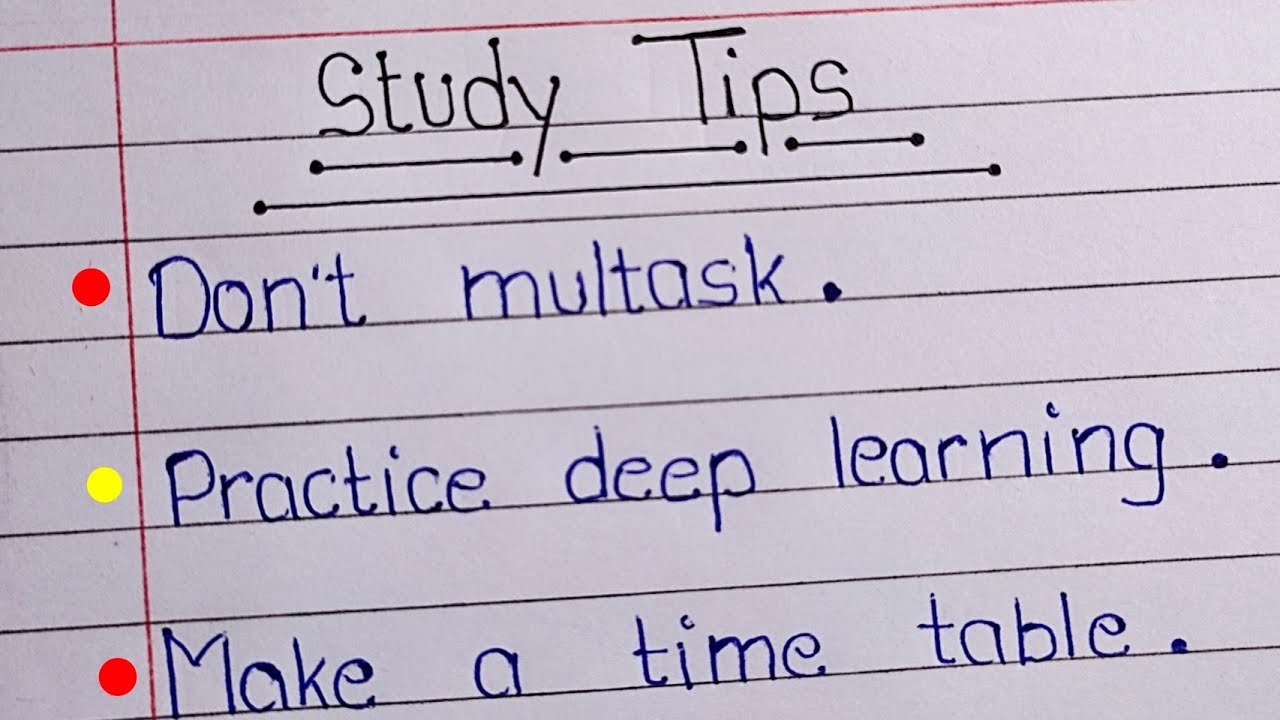 Study Tips
Don't multask.
Practice deep learning.
Make a time table.